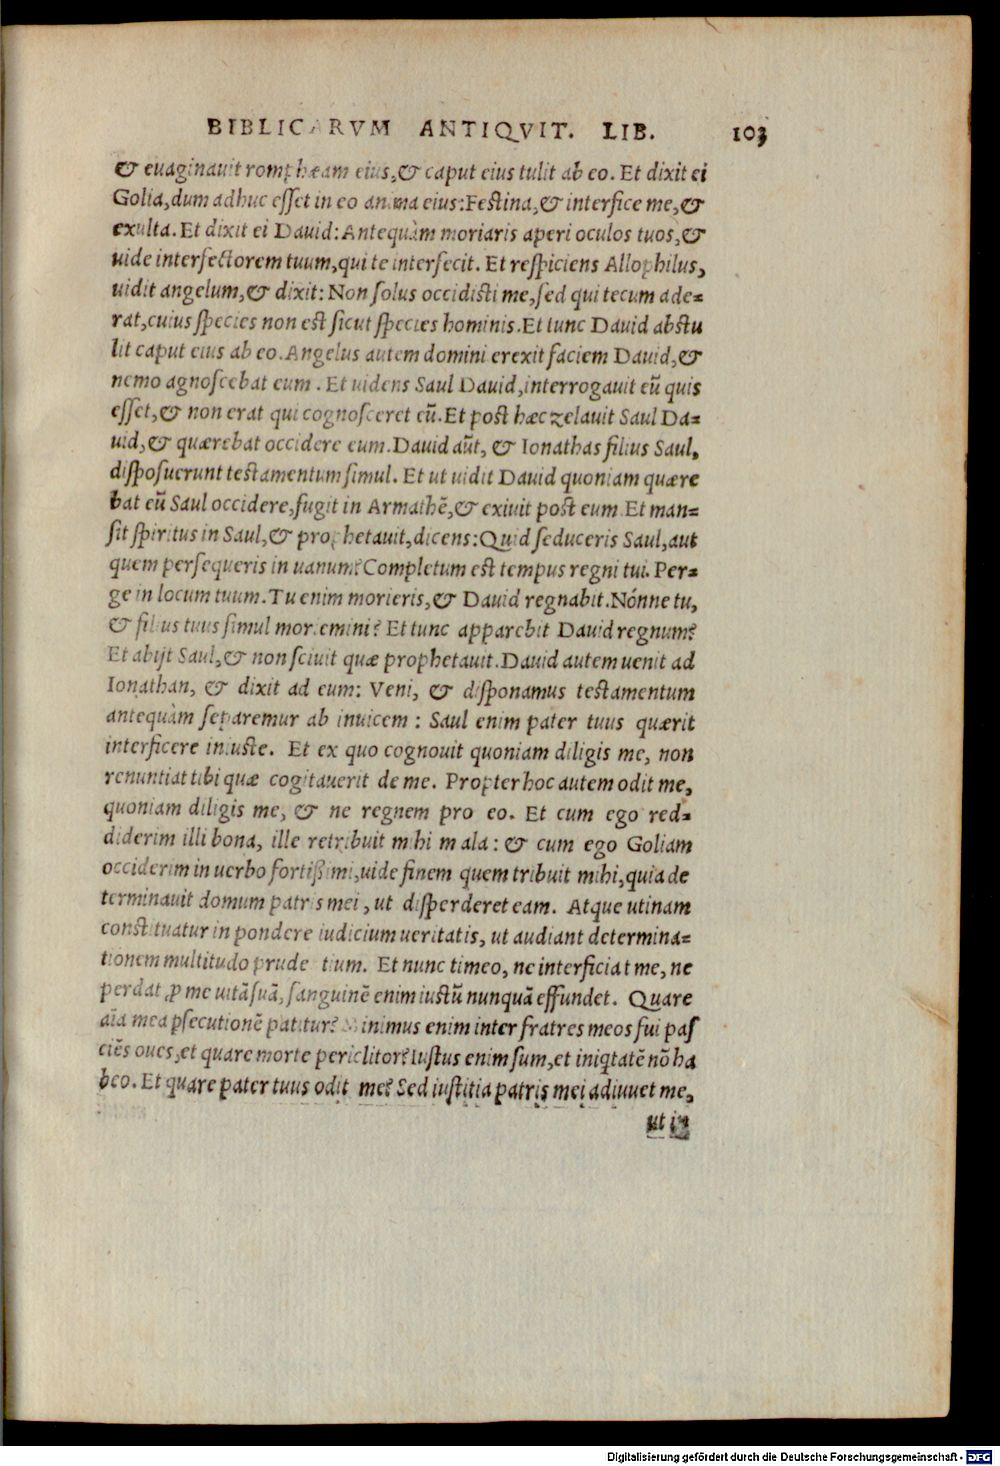 BIBLICARVM ANTIQVIT. LIB. 103
& euaginauit romphæam eius, & caput eius tulit ab eo. Et dixit ei
Golia, dum adhuc esset in eo anima eius: Festina, & interfice me, &
exulta. Et dixit ei Dauid: Antequàm moriaris aperi oculos tuos, &
uide interfectorem tuum, qui te interfecit. Et respiciens Allophilus,
uidit angelum, & dixit: Non solus occidisti me, sed qui tecum ade=
rat, cuius species non est sicut species hominis. Et tunc Dauid abstu
lit caput eius ab eo. Angelus autem domini erexit faciem Dauid, &
nemo agnoscebat eum. Et uidens Saul Dauid, interrogauit eũ quis
esset, & non erat qui cognosceret eũ. Et post hæc zelauit Saul Da=
uid, & quærebat occidere eum. Dauid aũt, & Ionathas filius Saul,
disposuerunt testamentum simul. Et ut uidit Dauid quoniam quære
bat eũ Saul occidere, fugit in Armathẽ, & exiuit post eum. Et man=
sit spiritus in Saul, & prophetauit, dicens: Quid seduceris Saul, aut
quem persequeris in uanum? Completum est tempus regni tui. Per=
ge in locum tuum. Tu enim morieris, & Dauid regnabit. Nónne tu,
& filius tuus simul moriemini? Et tunc apparebit Dauid regnum?
Et abijt Saul, & non sciuit quæ prophetauit. Dauid autem uenit ad
Ionathan, & dixit ad eum: Veni, & disponamus testamentum
antequàm separemur ab inuicem: Saul enim pater tuus quærit
interficere iniuste. Et ex quo cognouit quoniam diligis me, non
renuntiat tibi quæ cogitauerit de me. Propter hoc autem odit me,
quoniam diligis me, & ne regnem pro eo. Et cum ego red=
diderim illi bona, ille retribuit mihi mala: & cum ego Goliam
occiderim in uerbo fortißimi, uide finem quem tribuit mihi, quia de
terminauit domum patris mei, ut disperderet eam. Atque utinam
constituatur in pondere iudicium ueritatis, ut audiant determina=
tionem multitudo prudentium. Et nunc timeo, ne interficiat me, ne
perdat ꝓ me uitã suã, sanguinẽ enim iustũ nunquã effundet. Quare
aĩa mea ꝑsecutionẽ patitur? Minimus enim inter fratres meos fui pas
ciẽs oues, et quare morte periclitor? Iustus enim sum, et iniqtatẽ nõ ha
beo. Et quare pater tuus odit me? Sed iustitia patris mei adiuuet me,
ut in
Digitalisierung gefördert durch die Deutsche Forschungsgemeinschaft - DFG